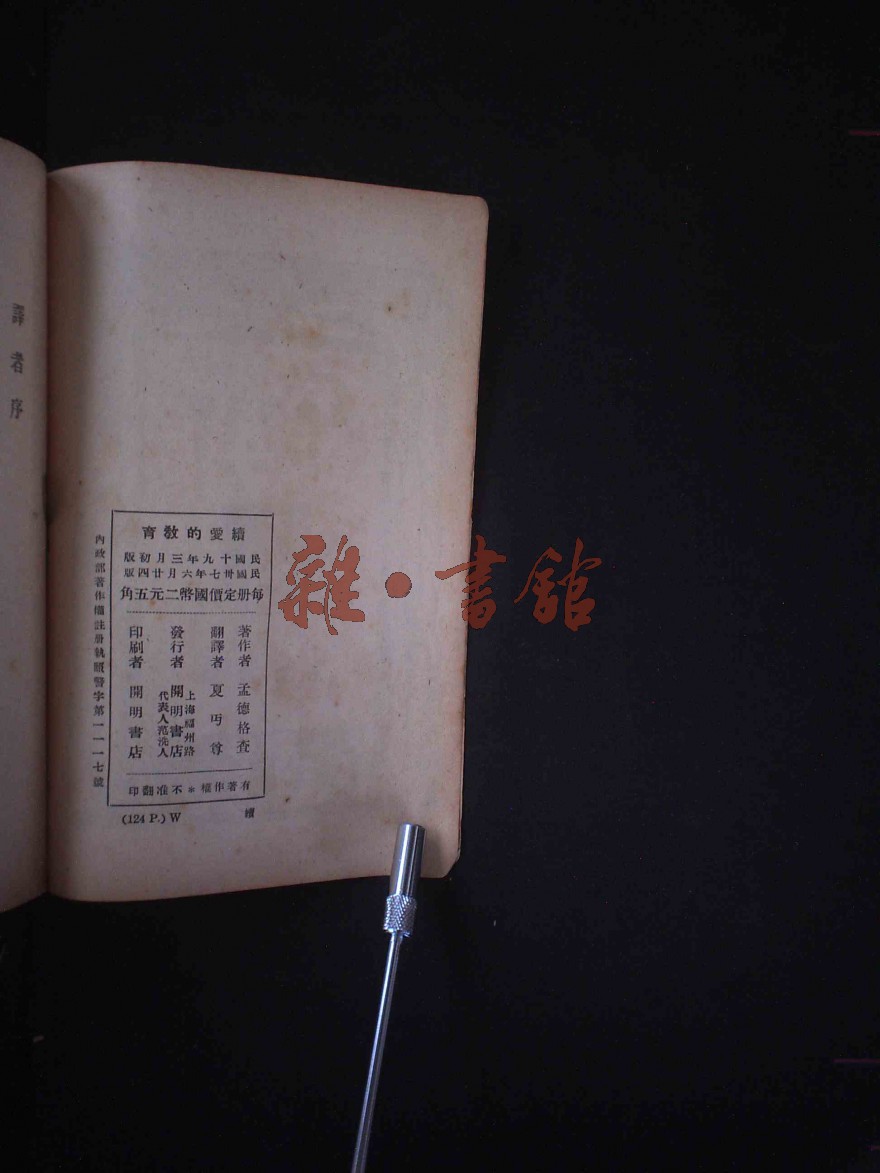 譯者序
續愛的教育
民國十九年三月初版
民國卅七年六月廿四版
每册定價國幣二元五角
著作者 孟德格查
翻譯者 夏丏尊
發行者 開明書店
上海福州路
代表人范洗人
印刷者 開明書店
有著作權*不准翻印
內政部著作權註册執照警字第一一一七號
(124 P.) W 續
雜·書館